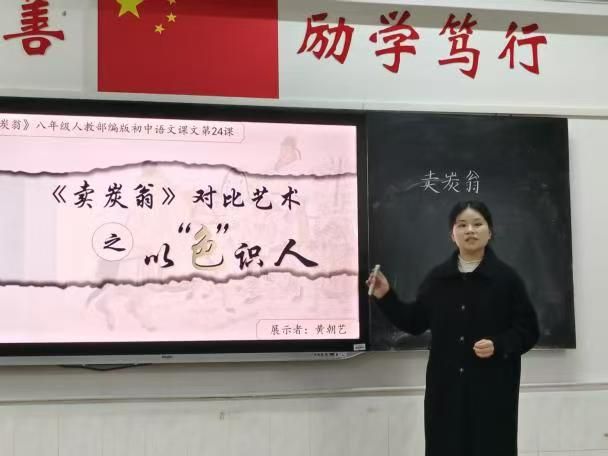 善
励学笃行
炭翁》八年级人教部编版初中语文课文第24课
《卖炭翁》对比艺术
之
以“色”识人
展示者：黄朝艺
卖炭翁